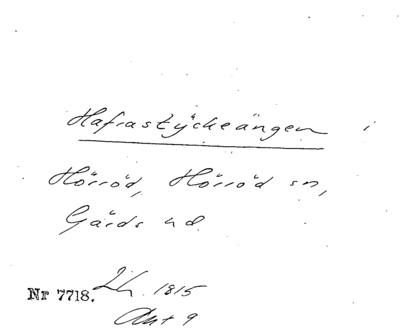 Hafrastÿckeängen i
Hörröd, Hörröd sn,
Gärds hd.
Nr 7718. Lh. 1815
Akt 9